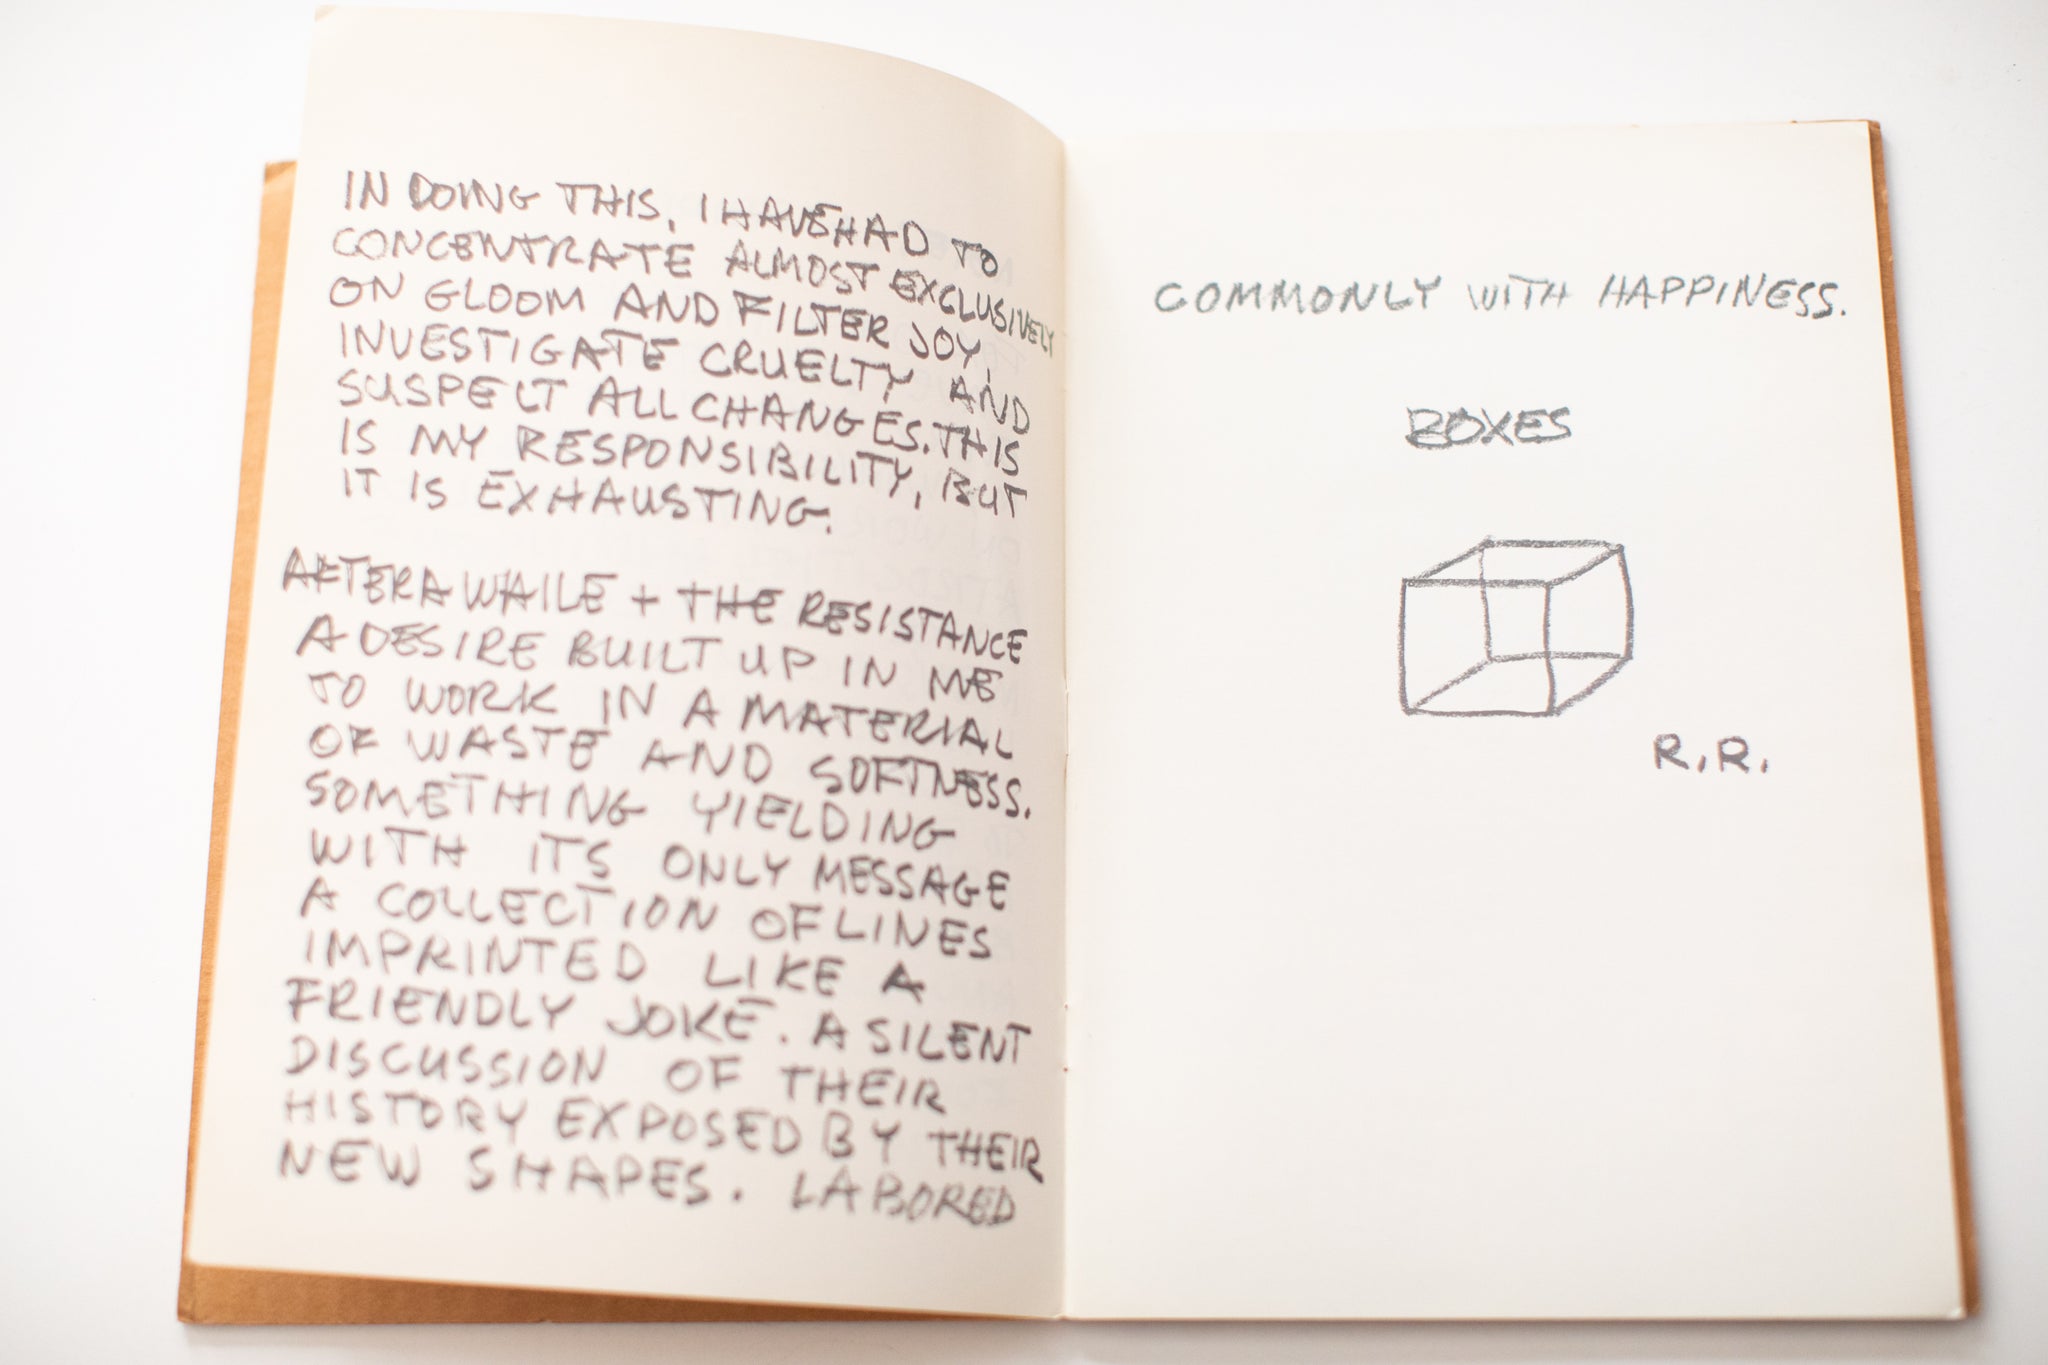 IN DOING THIS, I HAVE HAD TO
CONCENTRATE ALMOST EXCLUSIVELY
ON GLOOM AND FILTER JOY,
INVESTIGATE CRUELTY AND
SUSPECT ALL CHANGES. THIS
IS MY RESPONSIBILITY, BUT
IT IS EXHAUSTING.
AFTER A WHILE + THE RESISTANCE
A DESIRE BUILT UP IN ME
TO WORK IN A MATERIAL
OF WASTE AND SOFTNESS.
SOMETHING YIELDING
WITH ITS ONLY MESSAGE
A COLLECTION OF LINES
IMPRINTED LIKE A
FRIENDLY JOKE. A SILENT
DISCUSSION OF THEIR
HISTORY EXPOSED BY THEIR
NEW SHAPES. LABORED
COMMONLY WITH HAPPINESS.
BOXES
R.R.